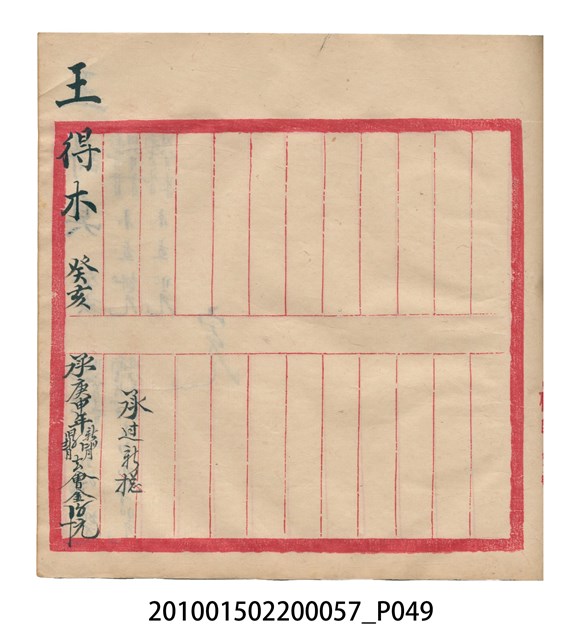 王得木
癸亥
承庚申年
去會金
承过新
201001502200057_P049